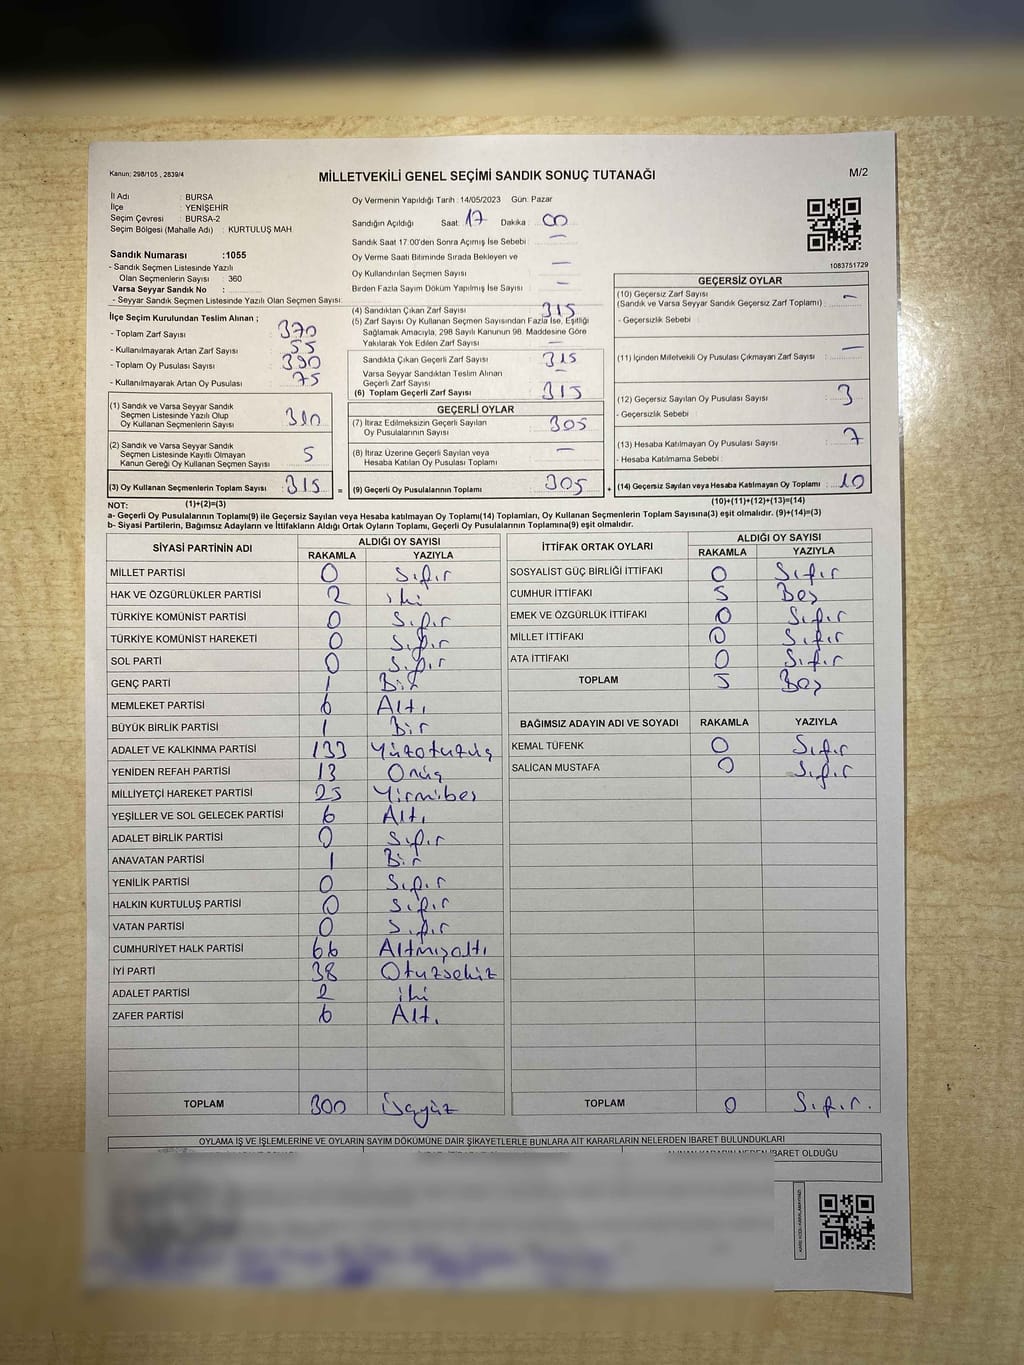 Kanun; 298/105 , 2839/4
MİLLETVEKİLİ GENEL SEÇİMİ SANDIK SONUÇ TUTANAĞI
M/2
İl Adı : BURSA
İlçe : YENİŞEHİR
Seçim Çevresi : BURSA-2
Seçim Bölgesi (Mahalle Adı) : KURTULUŞ MAH
Sandık Numarası :1055
- Sandık Seçmen Listesinde Yazılı
Olan Seçmenlerin Sayısı : 360
Varsa Seyyar Sandık No :
- Seyyar Sandık Seçmen Listesinde Yazılı Olan Seçmen Sayısı:
İlçe Seçim Kurulundan Teslim Alınan ;
- Toplam Zarf Sayısı 370
- Kullanılmayarak Artan Zarf Sayısı 55
- Toplam Oy Pusulası Sayısı 390
- Kullanılmayarak Artan Oy Pusulası 75
(1) Sandık ve Varsa Seyyar Sandık
Seçmen Listesinde Yazılı Olup
Oy Kullanan Seçmenlerin Sayısı 310
(2) Sandık ve Varsa Seyyar Sandık
Seçmen Listesinde Kayıtlı Olmayan
Kanun Gereği Oy Kullanan Seçmen Sayısı 5
(3) Oy Kullanan Seçmenlerin Toplam Sayısı : 315 =
Oy Vermenin Yapıldığı Tarih : 14/05/2023 Gün: Pazar
Sandığın Açıldığı Saat: 17 Dakika : 00
Sandık Saat 17.00'den Sonra Açımış İse Sebebi : —
Oy Verme Saati Bitiminde Sırada Bekleyen ve
Oy Kullandırılan Seçmen Sayısı —
Birden Fazla Sayım Döküm Yapılmış İse Sayısı : —
(4) Sandıktan Çıkan Zarf Sayısı 315
(5) Zarf Sayısı Oy Kullanan Seçmen Sayısından Fazla İse, Eşitliği
Sağlamak Amacıyla, 298 Sayılı Kanunun 98. Maddesine Göre
Yakılarak Yok Edilen Zarf Sayısı —
Sandıkta Çıkan Geçerli Zarf Sayısı 315
Varsa Seyyar Sandıktan Teslim Alınan
Geçerli Zarf Sayısı —
(6) Toplam Geçerli Zarf Sayısı 315
GEÇERLİ OYLAR
(7) İtiraz Edilmeksizin Geçerli Sayılan
Oy Pusulalarının Sayısı 305
(8) İtiraz Üzerine Geçerli Sayılan veya
Hesaba Katılan Oy Pusulası Toplamı —
(9) Geçerli Oy Pusulalarının Toplamı 305 +
1083751729
GEÇERSİZ OYLAR
(10) Geçersiz Zarf Sayısı
(Sandık ve Varsa Seyyar Sandık Geçersiz Zarf Toplamı) : —
- Geçersizlik Sebebi :
(11) İçinden Milletvekili Oy Pusulası Çıkmayan Zarf Sayısı : —
(12) Geçersiz Sayılan Oy Pusulası Sayısı : 3
- Geçersizlik Sebebi :
(13) Hesaba Katılmayan Oy Pusulası Sayısı : 7
- Hesaba Katılmama Sebebi :
(14) Geçersiz Sayılan veya Hesaba Katılmayan Oy Toplamı : 10
NOT: (1)+(2)=(3) (10)+(11)+(12)+(13)=(14)
a- Geçerli Oy Pusulalarının Toplamı(9) ile Geçersiz Sayılan veya Hesaba katılmayan Oy Toplamı(14) Toplamları, Oy Kullanan Seçmenlerin Toplam Sayısına(3) eşit olmalıdır. (9)+(14)=(3)
b- Siyasi Partilerin, Bağımsız Adayların ve İttifakların Aldığı Ortak Oyların Toplamı, Geçerli Oy Pusulalarının Toplamına(9) eşit olmalıdır.
SİYASİ PARTİNİN ADI ALDIĞI OY SAYISI
RAKAMLA YAZIYLA
MİLLET PARTİSİ 0 Sıfır
HAK VE ÖZGÜRLÜKLER PARTİSİ 2 iki
TÜRKİYE KOMÜNİST PARTİSİ 0 Sıfır
TÜRKİYE KOMÜNİST HAREKETİ 0 Sıfır
SOL PARTİ 0 Sıfır
GENÇ PARTİ 1 Bir
MEMLEKET PARTİSİ 6 Altı
BÜYÜK BİRLİK PARTİSİ 1 Bir
ADALET VE KALKINMA PARTİSİ 133 Yüzotuzüç
YENİDEN REFAH PARTİSİ 13 Onüç
MİLLİYETÇİ HAREKET PARTİSİ 25 Yirmibeş
YEŞİLLER VE SOL GELECEK PARTİSİ 6 Altı
ADALET BİRLİK PARTİSİ 0 Sıfır
ANAVATAN PARTİSİ 1 Bir
YENİLİK PARTİSİ 0 Sıfır
HALKIN KURTULUŞ PARTİSİ 0 Sıfır
VATAN PARTİSİ 0 Sıfır
CUMHURİYET HALK PARTİSİ 66 Altmışaltı
İYİ PARTİ 38 Otuzsekiz
ADALET PARTİSİ 2 iki
ZAFER PARTİSİ 6 Altı
TOPLAM 300 Üçyüz
İTTİFAK ORTAK OYLARI ALDIĞI OY SAYISI
RAKAMLA YAZIYLA
SOSYALİST GÜÇ BİRLİĞİ İTTİFAKI 0 Sıfır
CUMHUR İTTİFAKI 5 Beş
EMEK VE ÖZGÜRLÜK İTTİFAKI 0 Sıfır
MİLLET İTTİFAKI 0 Sıfır
ATA İTTİFAKI 0 Sıfır
TOPLAM 5 Beş
BAĞIMSIZ ADAYIN ADI VE SOYADI RAKAMLA YAZIYLA
KEMAL TÜFENK 0 Sıfır
SALİCAN MUSTAFA 0 Sıfır
TOPLAM 0 Sıfır.
OYLAMA İŞ VE İŞLEMLERİNE VE OYLARIN SAYIM DÖKÜMÜNE DAİR ŞİKAYETLERLE BUNLARA AİT KARARLARIN NELERDEN İBARET BULUNDUKLARI
ALINAN KARARIN NEDEN İBARET OLDUĞU